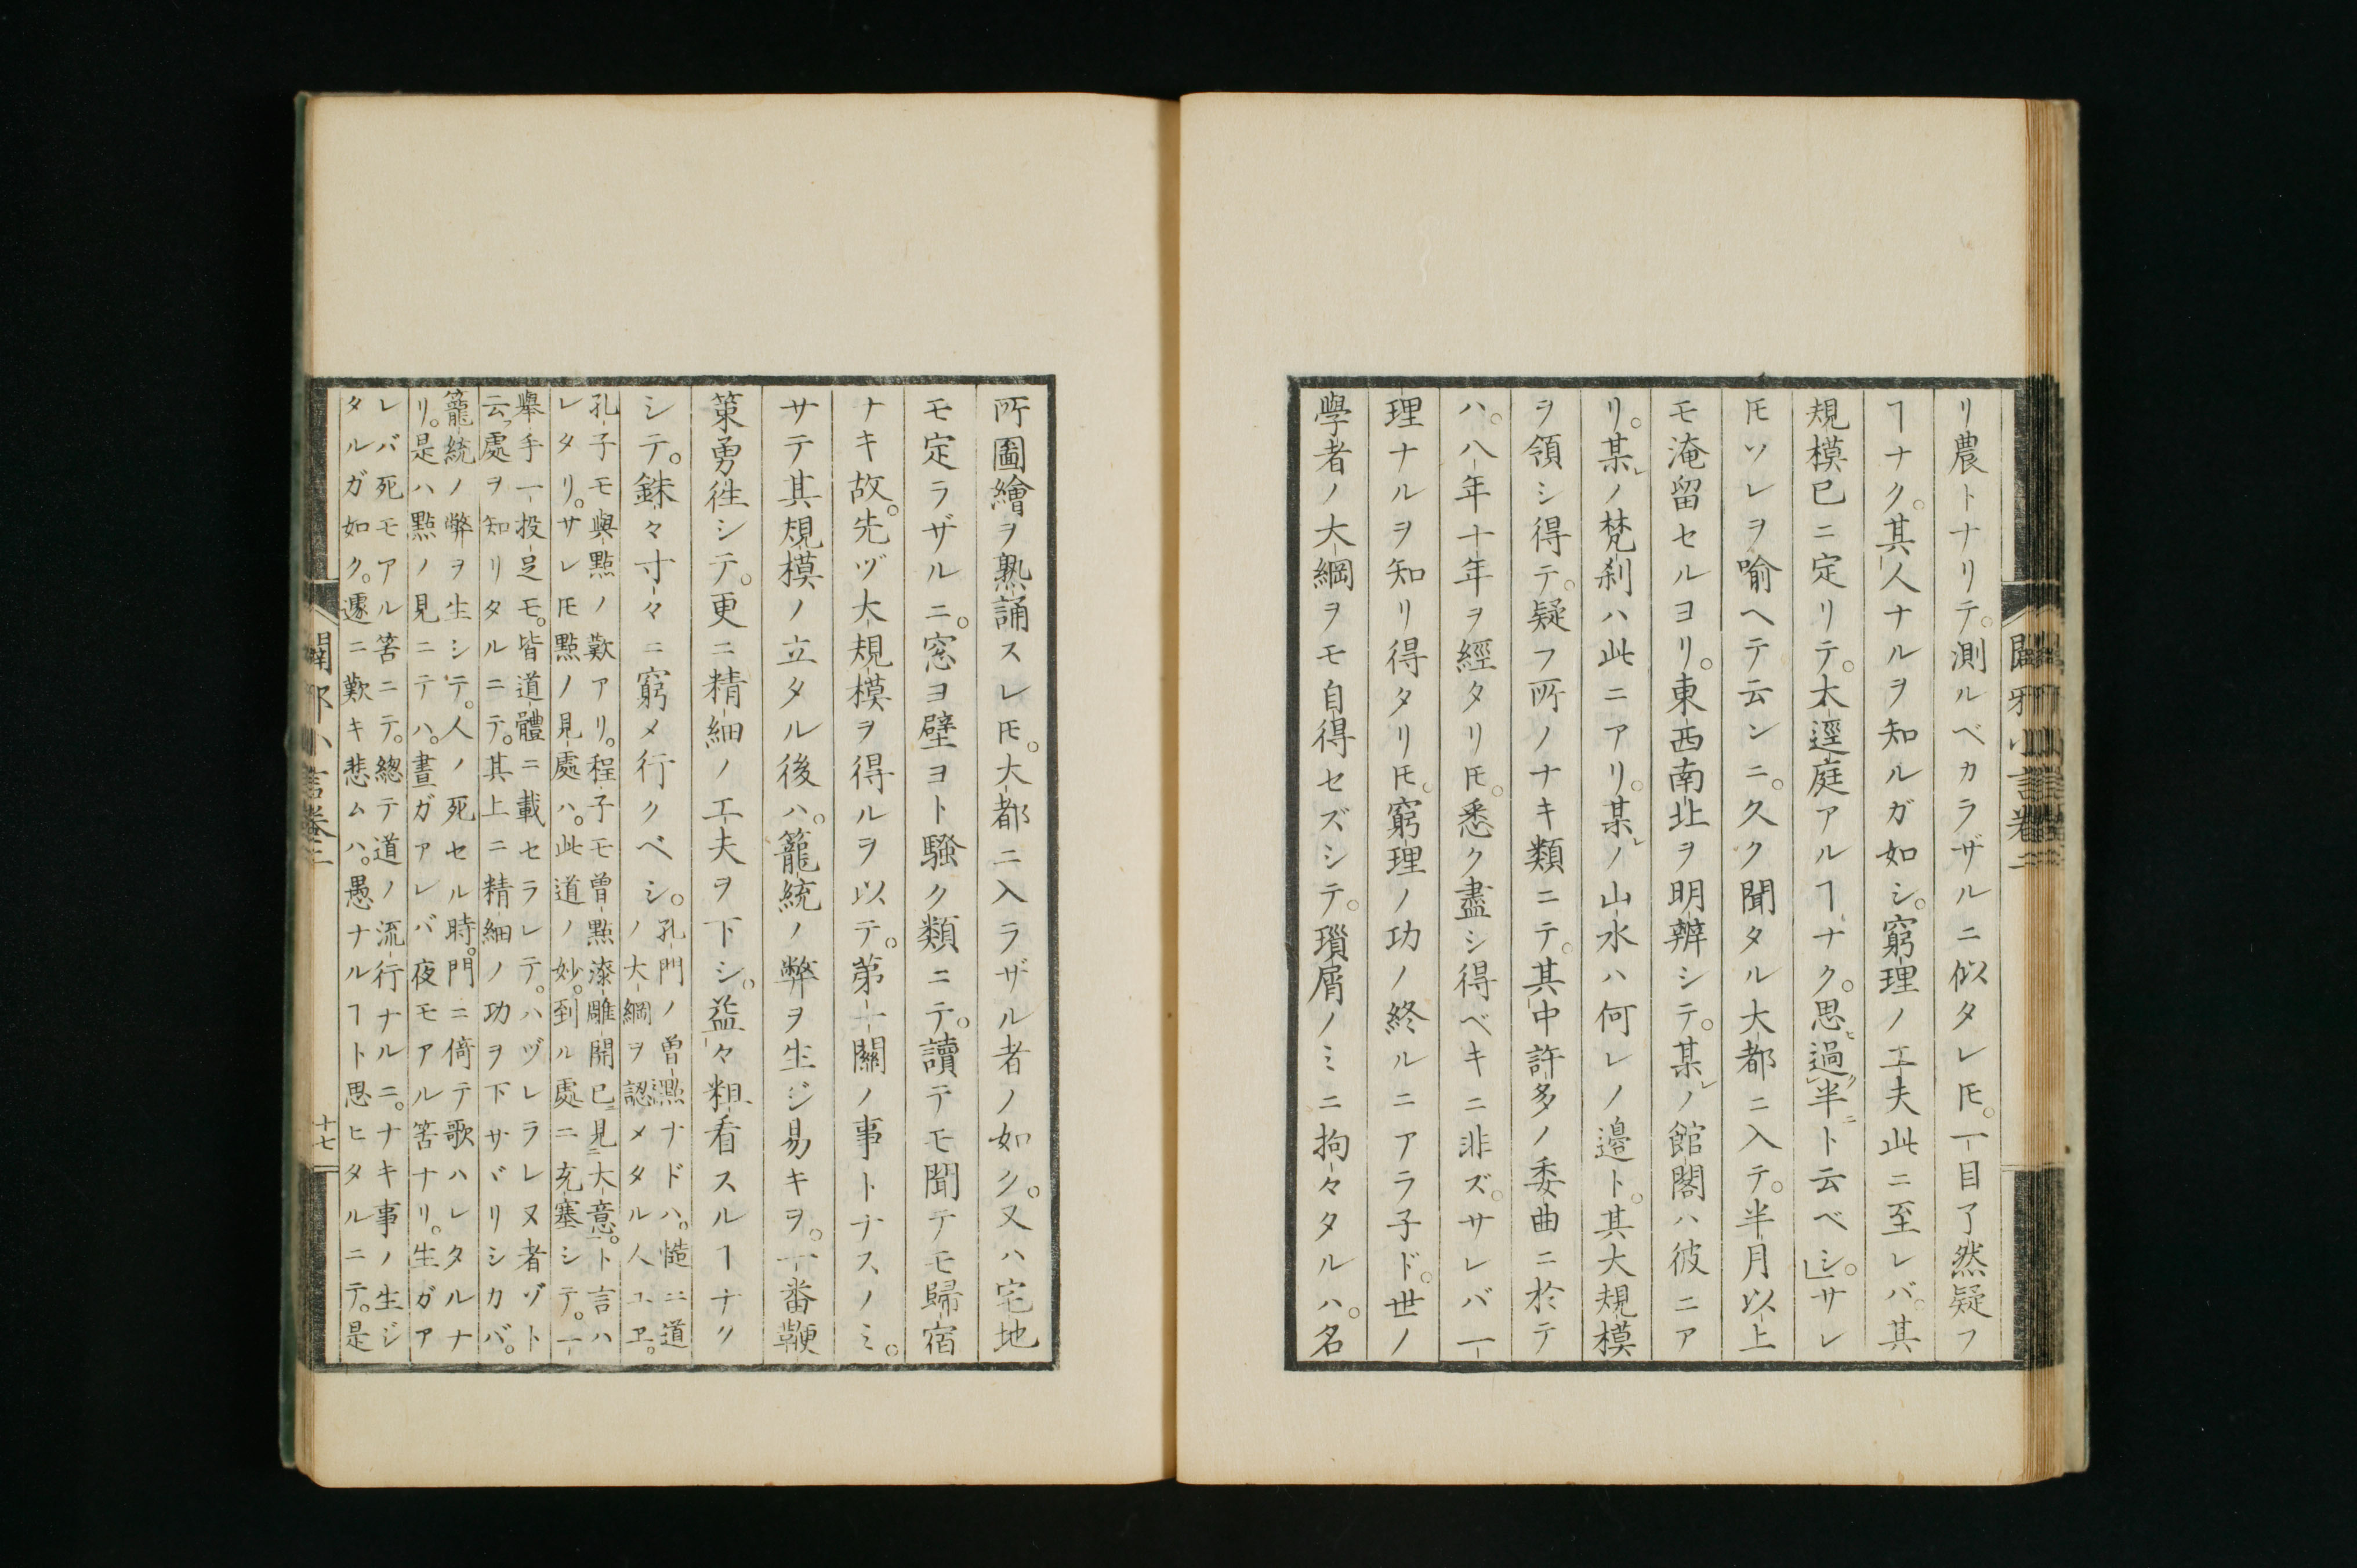 リ農トナリテ。測ルベカラザルニ似タレ𪜈。一目了然疑フ
ヿナク。其人ナルヲ知ルガ如シ。窮理ノ工夫此ニ至レバ。其
規模已ニ定リテ。太逕庭アルヿナク。思過半ト云ベシ。」サレ
𪜈ソレヲ喩ヘテ云ンニ。久ク聞タル大都ニ入テ。半月以上
モ淹留セルヨリ。東西南北ヲ明辨シテ。某ノ館閣ハ彼ニア
リ。某ノ梵刹ハ此ニアリ。某ノ山水ハ何レノ邉ト。其大規模
ヲ領シ得テ。疑フ所ノナキ類ニテ。其中許多ノ委曲ニ於テ
ハ。八年十年ヲ經タリ𪜈。悉ク盡シ得ベキニ非ズ。サレバ一
理ナルヲ知リ得タリ𪜈。窮理ノ功ノ終ルニアラ子ド。世ノ
學者ノ大綱ヲモ自得セズシテ。瑣屑ノミニ拘々タルハ。名
闢邪小言卷二
所圖繪ヲ熟誦スレ𪜈。大都ニ入ラザル者ノ如ク。又ハ宅地
モ定ラザルニ。窓ヨ壁ヨト騒ク類ニテ。讀テモ聞テモ歸宿
ナキ故。先ヅ大規模ヲ得ルヲ以テ。第一關ノ事トナスノミ。
サテ其規模ノ立タル後ハ。籠統ノ弊ヲ生ジ易キヲ。一番鞭
策勇徃シテ。更ニ精細ノ工夫ヲ下シ。益々粗看スルヿナク
シテ。銖々寸々ニ窮メ行クベシ。孔門ノ曽點ナドハ。慥ニ道
ノ大綱ヲ認メタル人ユヱ。
孔子モ與點ノ歎アリ。程子モ曽點漆雕開已見大意。ト言ハ
レタリ。サレ𪜈點ノ見處ハ。此道ノ妙。到ル處ニ充塞シテ。一
舉手一投足モ。皆道體ニ載セラレテ。ハヅレラレヌ者ゾト
云處ヲ知リタルニテ。其上ニ精細ノ功ヲ下サヾリシカバ。
籠統ノ弊ヲ生シテ。人ノ死セル時。門ニ倚テ歌ハレタルナ
リ。是ハ點ノ見ニテハ。晝ガアレバ夜モアル筈ナリ。生ガア
レバ死モアル筈ニテ。總テ道ノ流行ナルニ。ナキ事ノ生ジ
タルガ如ク。遽ニ歎キ悲ムハ。愚ナルヿト思ヒタルニテ。是
闢邪小言卷二
十七